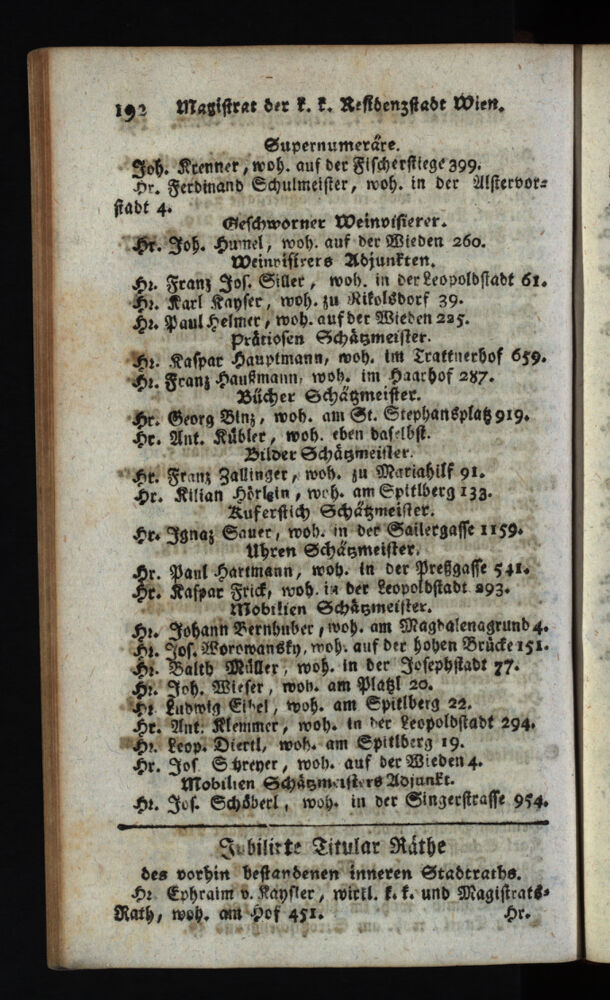 192 Magistrat der k. k. Residenzstadt Wien.
Supernumeräre.
Joh. Krenner, woh. auf der Fischerstiege 399.
Hr. Ferdinand Schulmeister, woh. in der Alstervor-
stadt 4.
Geschworner Weinvisierer.
Hr. Joh. Humel, woh. auf der Wieden 260.
Weinvisirers Adjunkten.
Hr. Franz Jos. Siller, woh. in der Leopoldstadt 61.
Hr. Karl Kayser, woh. zu Nikolsdorf 39.
Hr. Paul Helmer, woh. auf der Wieden 225.
Prätiosen Schätzmeister.
Hr. Kaspar Hauptmann, woh. im Trattnerhof 659.
Hr. Franz Haußmann, woh. im Haarhof 287.
Bücher Schätzmeister.
Hr. Georg Binz, woh. am St. Stephansplatz 919.
Hr. Ant. Kübler, woh. eben daselbst.
Bilder Schätzmeister.
Hr. Franz Zallinger, woh. zu Mariahilf 91.
Hr. Kilian Hörlein, woh. am Spitlberg 133.
Kuferstich Schätzmeister.
Hr. Ignaz Sauer, woh. in der Sailergasse 1159.
Uhren Schätzmeister.
Hr. Paul Hartmann, woh. in der Preßgasse 541.
Hr. Kaspar Frick, woh. in der Leopoldstadt 293.
Mobilien Schätzmeister.
Hr. Johann Bernhuber, woh. am Magdalenagrund 4.
Hr. Jos. Worowansky, woh. auf der hohen Brücke 151.
Hr. Balth Müller, woh. in der Josephstadt 77.
Hr. Joh. Wieser, woh. am Platzl 20.
Hr. Ludwig Eibel, woh. am Spitlberg 22.
Hr. Ant. Klemmer, woh. in der Leopoldstadt 294.
Hr. Leop. Diertl, woh. am Spitlberg 19.
Hr. Jos. Schreyer, woh. auf der Wieden 4.
Mobilien Schätzmeisters Adjunkt.
Hr. Jos. Schöberl, woh. in der Singerstrasse 954.
Jubilirte Titular Räthe
des vorhin bestandenen inneren Stadtraths.
Hr Ephraim v. Kaysler, wirkl. k. k. und Magistrats-
Rath, woh. am Hof 451. Hr.